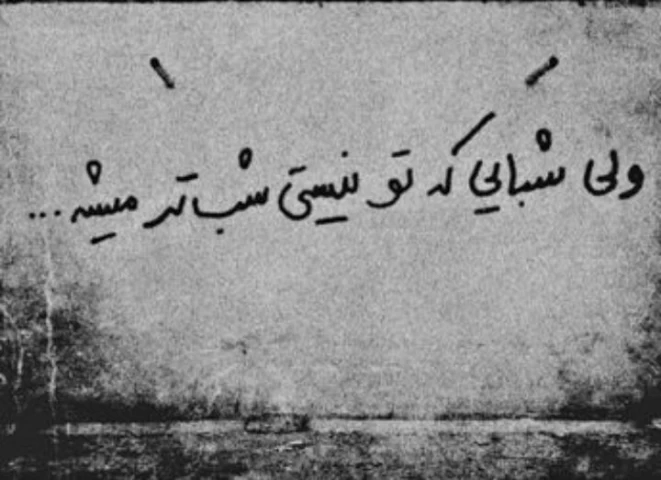 ولی شبایی که تو نیستی شب تر میشه...